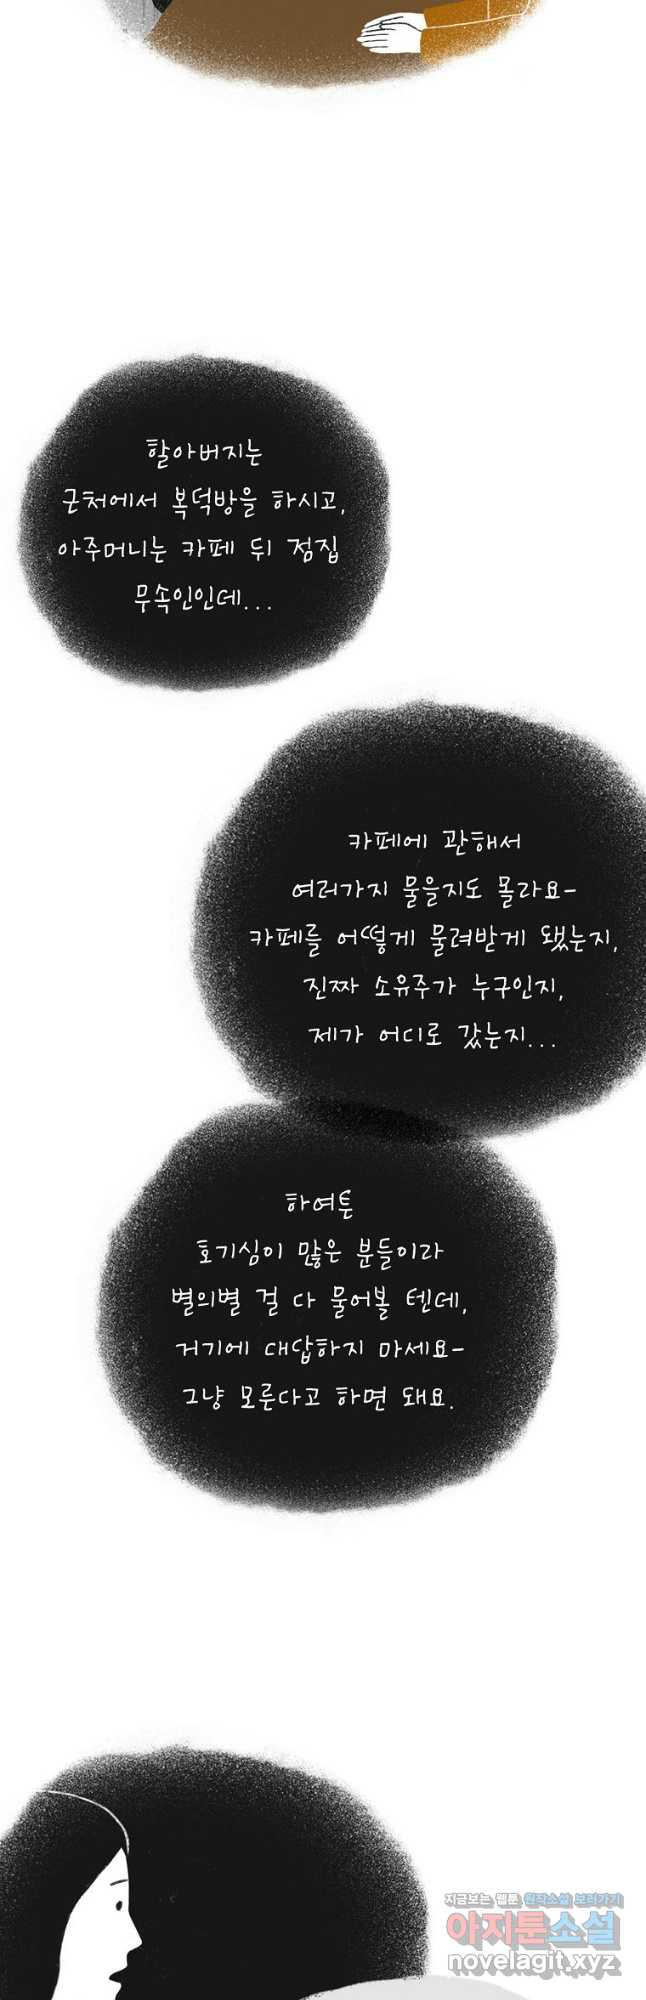 할아버지는
근처에서 복덕방을 하시고,
아주머니는 카페 뒤 점집
무속인인데...
카페에 관해서
여러가지 물을지도 몰라요-
카페를 어떻게 물려받게 됐는지,
진짜 소유주가 누구인지,
제가 어디로 갔는지...
하여튼
호기심이 많은 분들이라
별의별 걸 다 물어볼 텐데,
거기에 대답하지 마세요-
그냥 모른다고 하면 돼요.
지금보는 웹툰 원작소설 보러가기
아지툰소설
novelagit.xyz